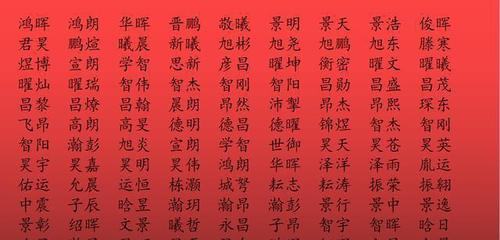 鸿晖 鸿朗 华晖 晋鹏 敬曦 景明 景天 景浩 俊晖
君昊 鹏煊 曦晨 新曦 旭彬 旭尧 旭鹏 旭东 滕寒
煜博 宣朗 学智 思新 彦昌 曜坤 衡密 曜文 曜曦
曜灿 曜瑞 智伟 智杰 智刚 阳 昌勋 昌盛 昌茂
昌黎 昌燎 昌翰 晨朗 昂然 沛犁 昂杰 昂熙 琛东
飞昂 高朗 高旻 德明 德昌 德曜 锦煜 智杰 智刚
智阳 瀚彭 旭炎 德明 智宇 世御 昊天 昊苍 昊英
昊宇 昊嘉 昊明 昊伟 鸿朗 华晖 泽洋 泽雨 胤运
佑运 允晨 运恒 栋灏 城弩 耘志 耘涛 振荣 振翱
中震 子辰 晗昱 瀚玥 瀚昂 瀚彭 景行 景中 景逸
景彰 绍晖 文景 曦哲 永昌 子昂 智宇 智晖 晗日